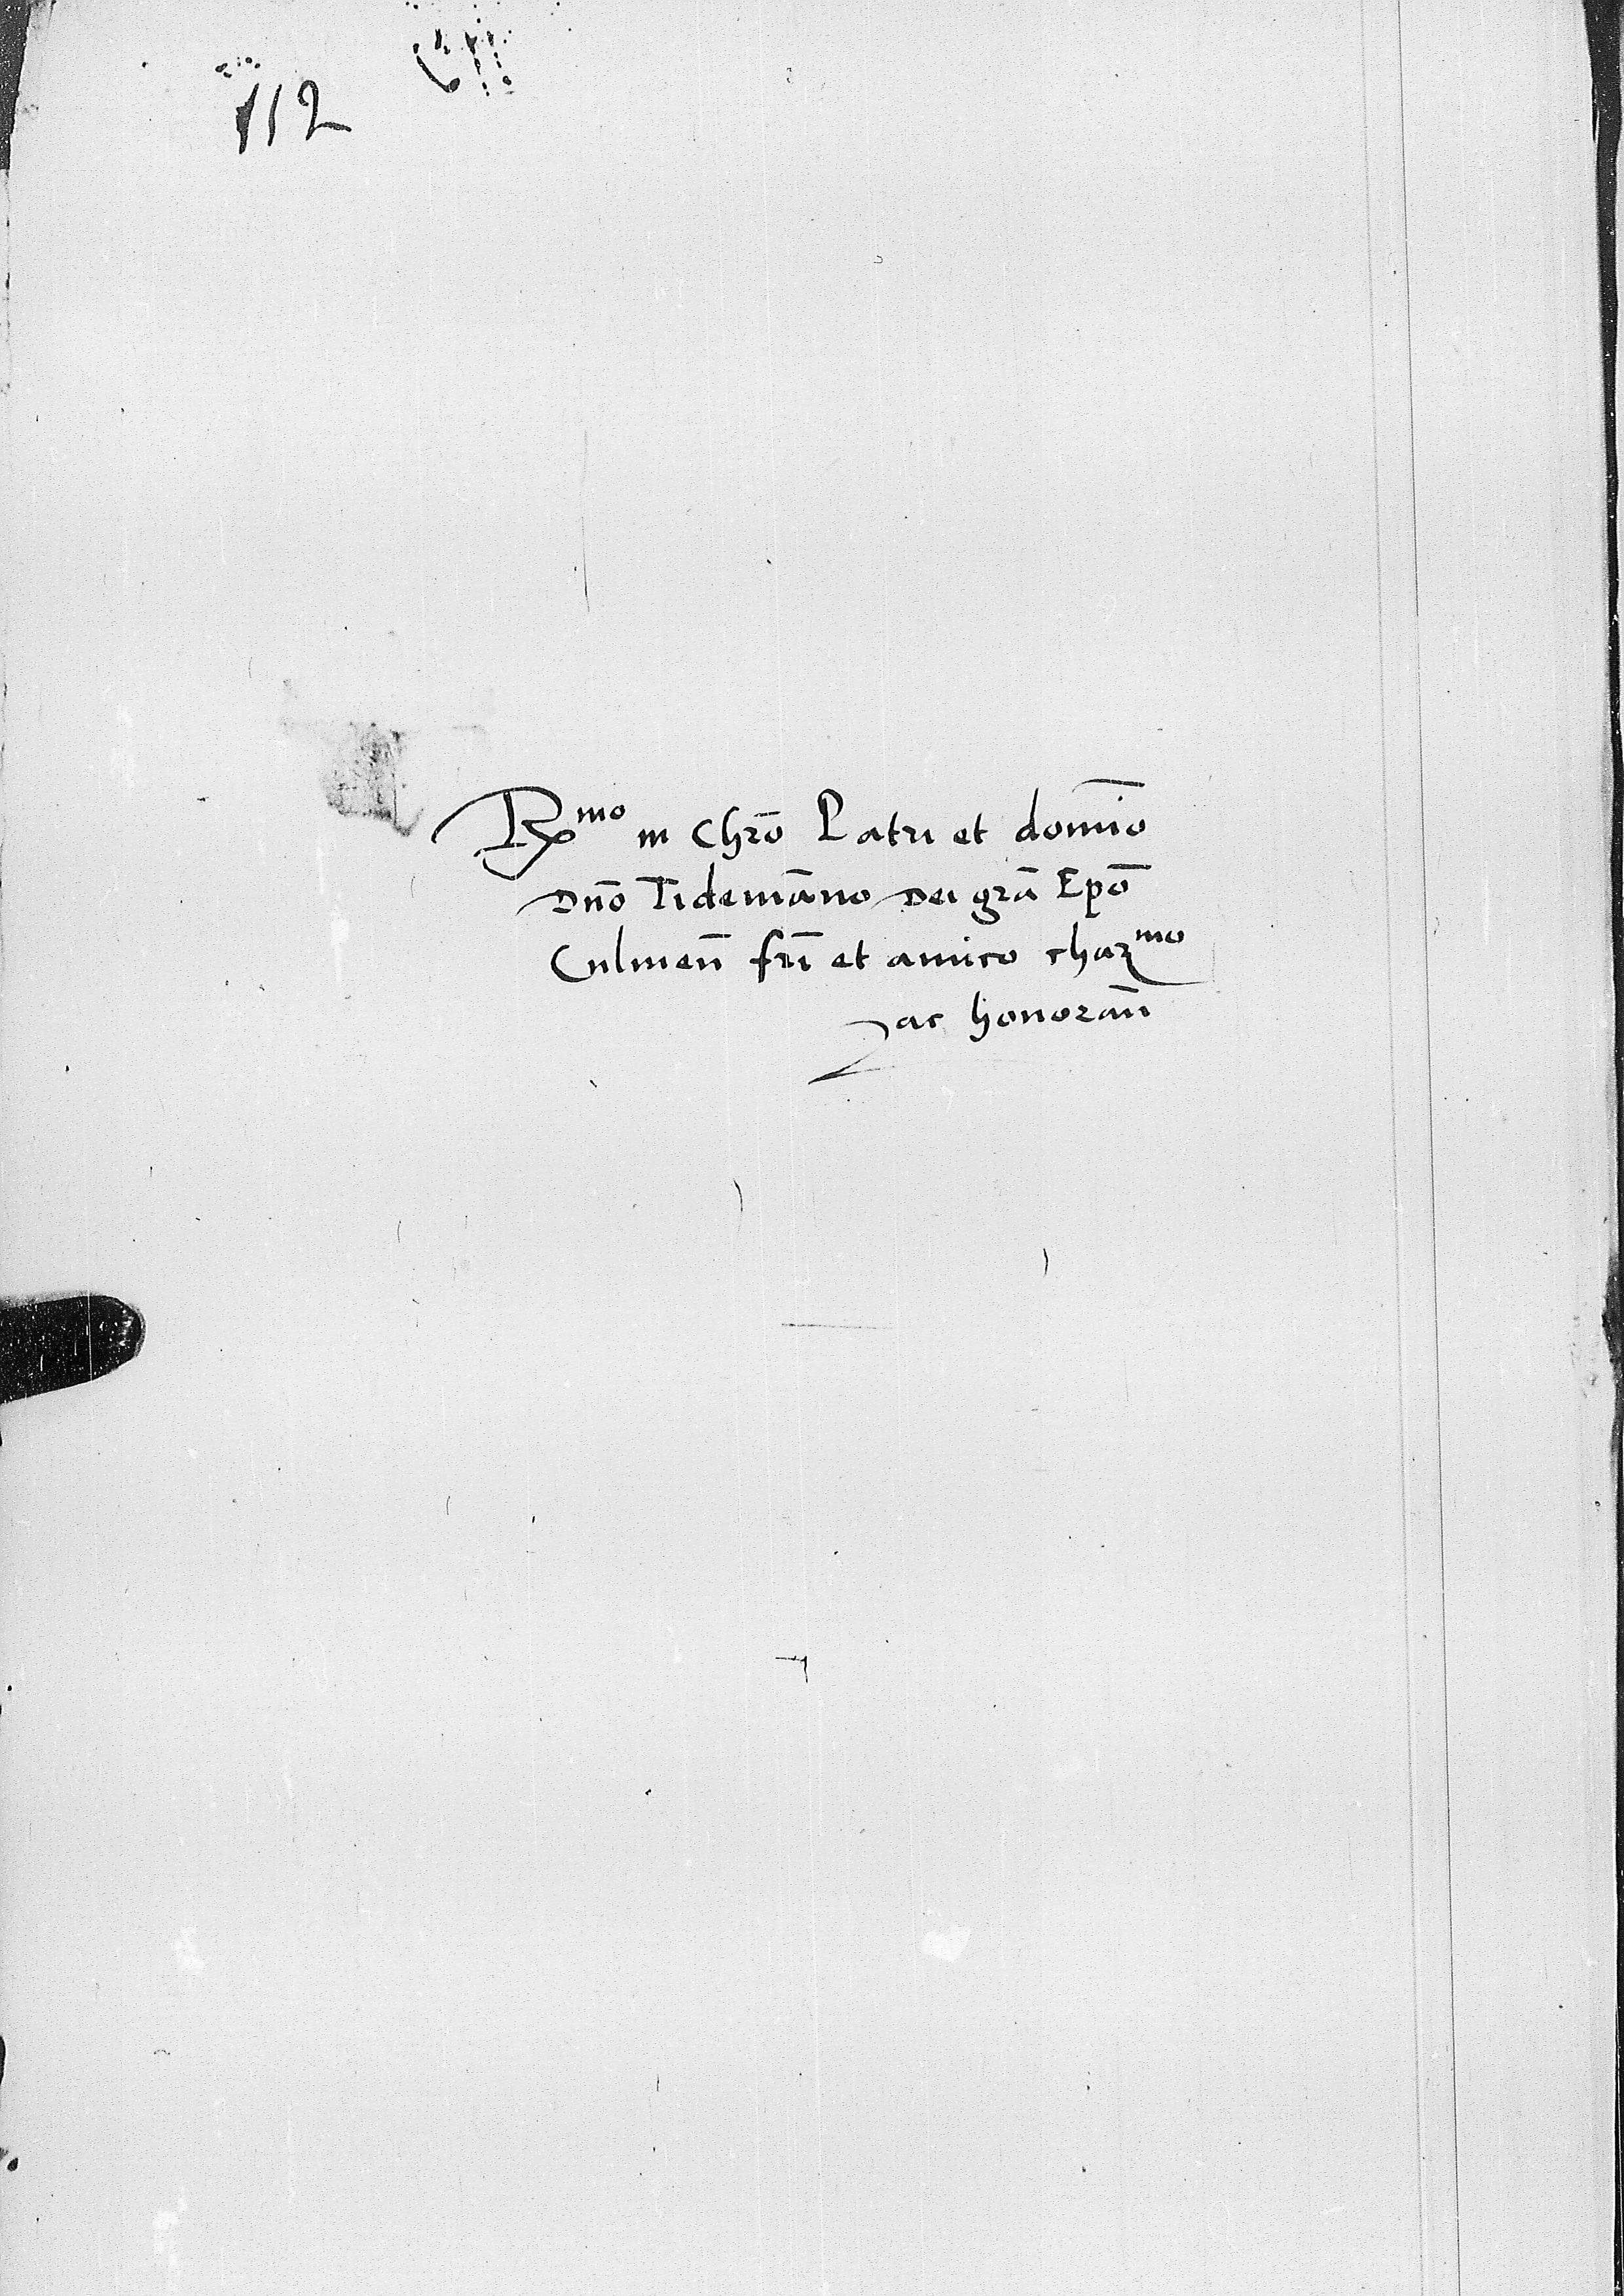 112
Rmo in Chro Patri et domino
Dno Tidemanno Dei gra Epo
Culmen fri et amico charmo
ac honoran